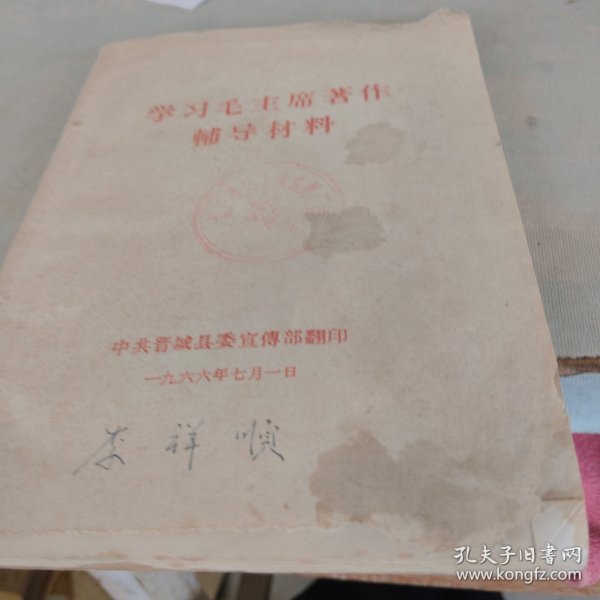 学习毛主席著作
輔导材料
中共晋城县委宣傳部翻印
一九六六年七月一日
李祥順
孔夫子旧书网
www.kongfz.com